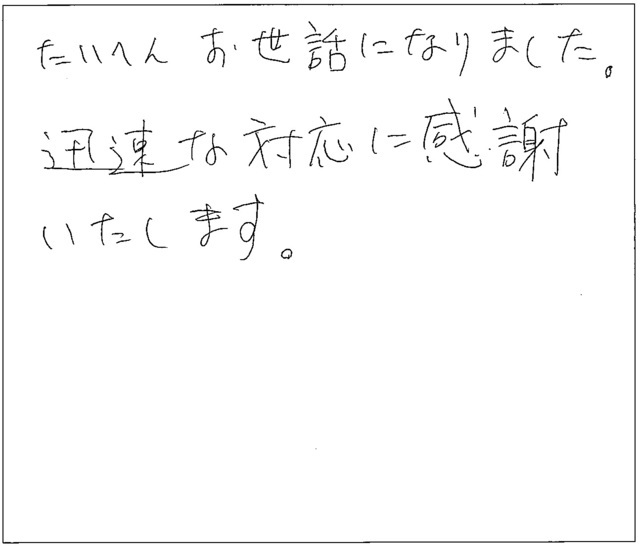 たいへんお世話になりました。
迅速な対応に感謝
いたします。